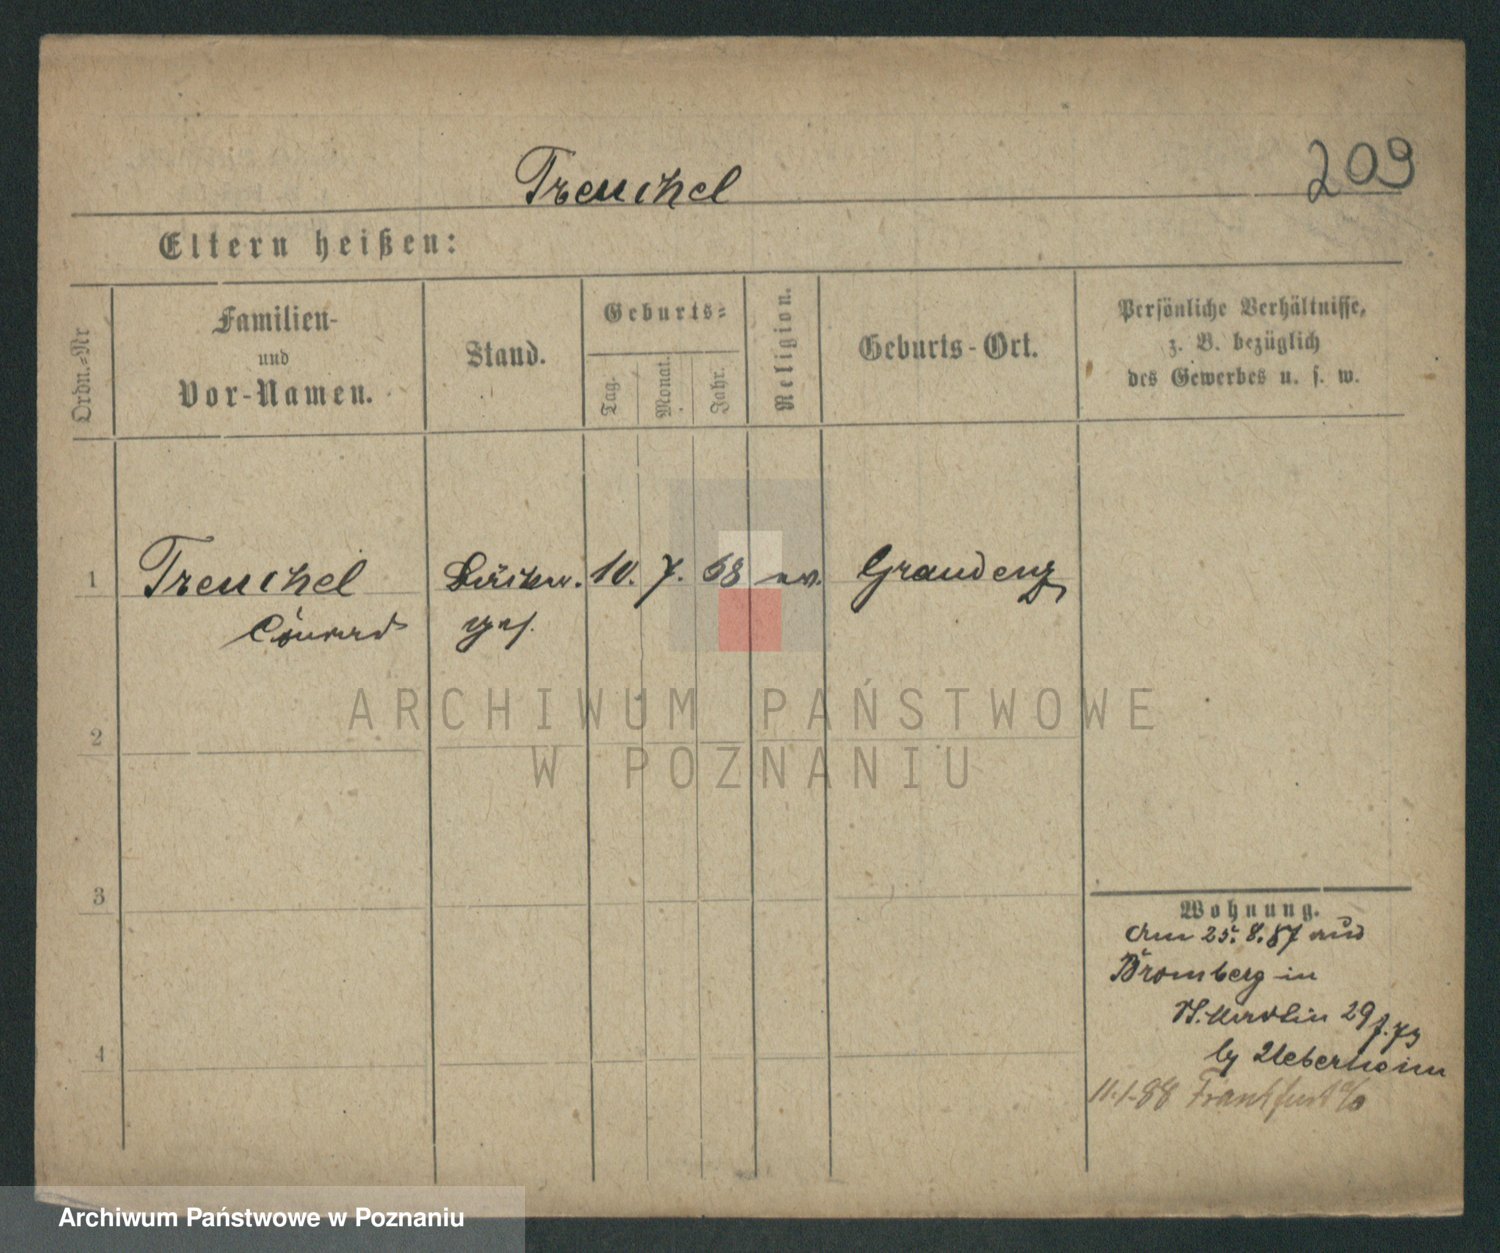 Treuchel
209
Eltern heißen:
Ordn.-Nr
Familien-
und
Vor-Namen.
Stand.
Geburts-
Tag.
Monat.
Jahr.
Religion.
Geburts-Ort.
Persönliche Verhältnisse,
z. B. bezüglich
des Gewerbes u. s. w.
1 Treuchel 10. 7. 68 ev. Graudenz
Conrad ges.
ARCHIWUM PAŃSTWOWE
W POZNANIU
2
3
4
Wohnung.
Am 25.8.87 aus
Bromberg in
St. Martin 29
by
11.1.88 Frankfurt a/o
Archiwum Państwowe w Poznaniu